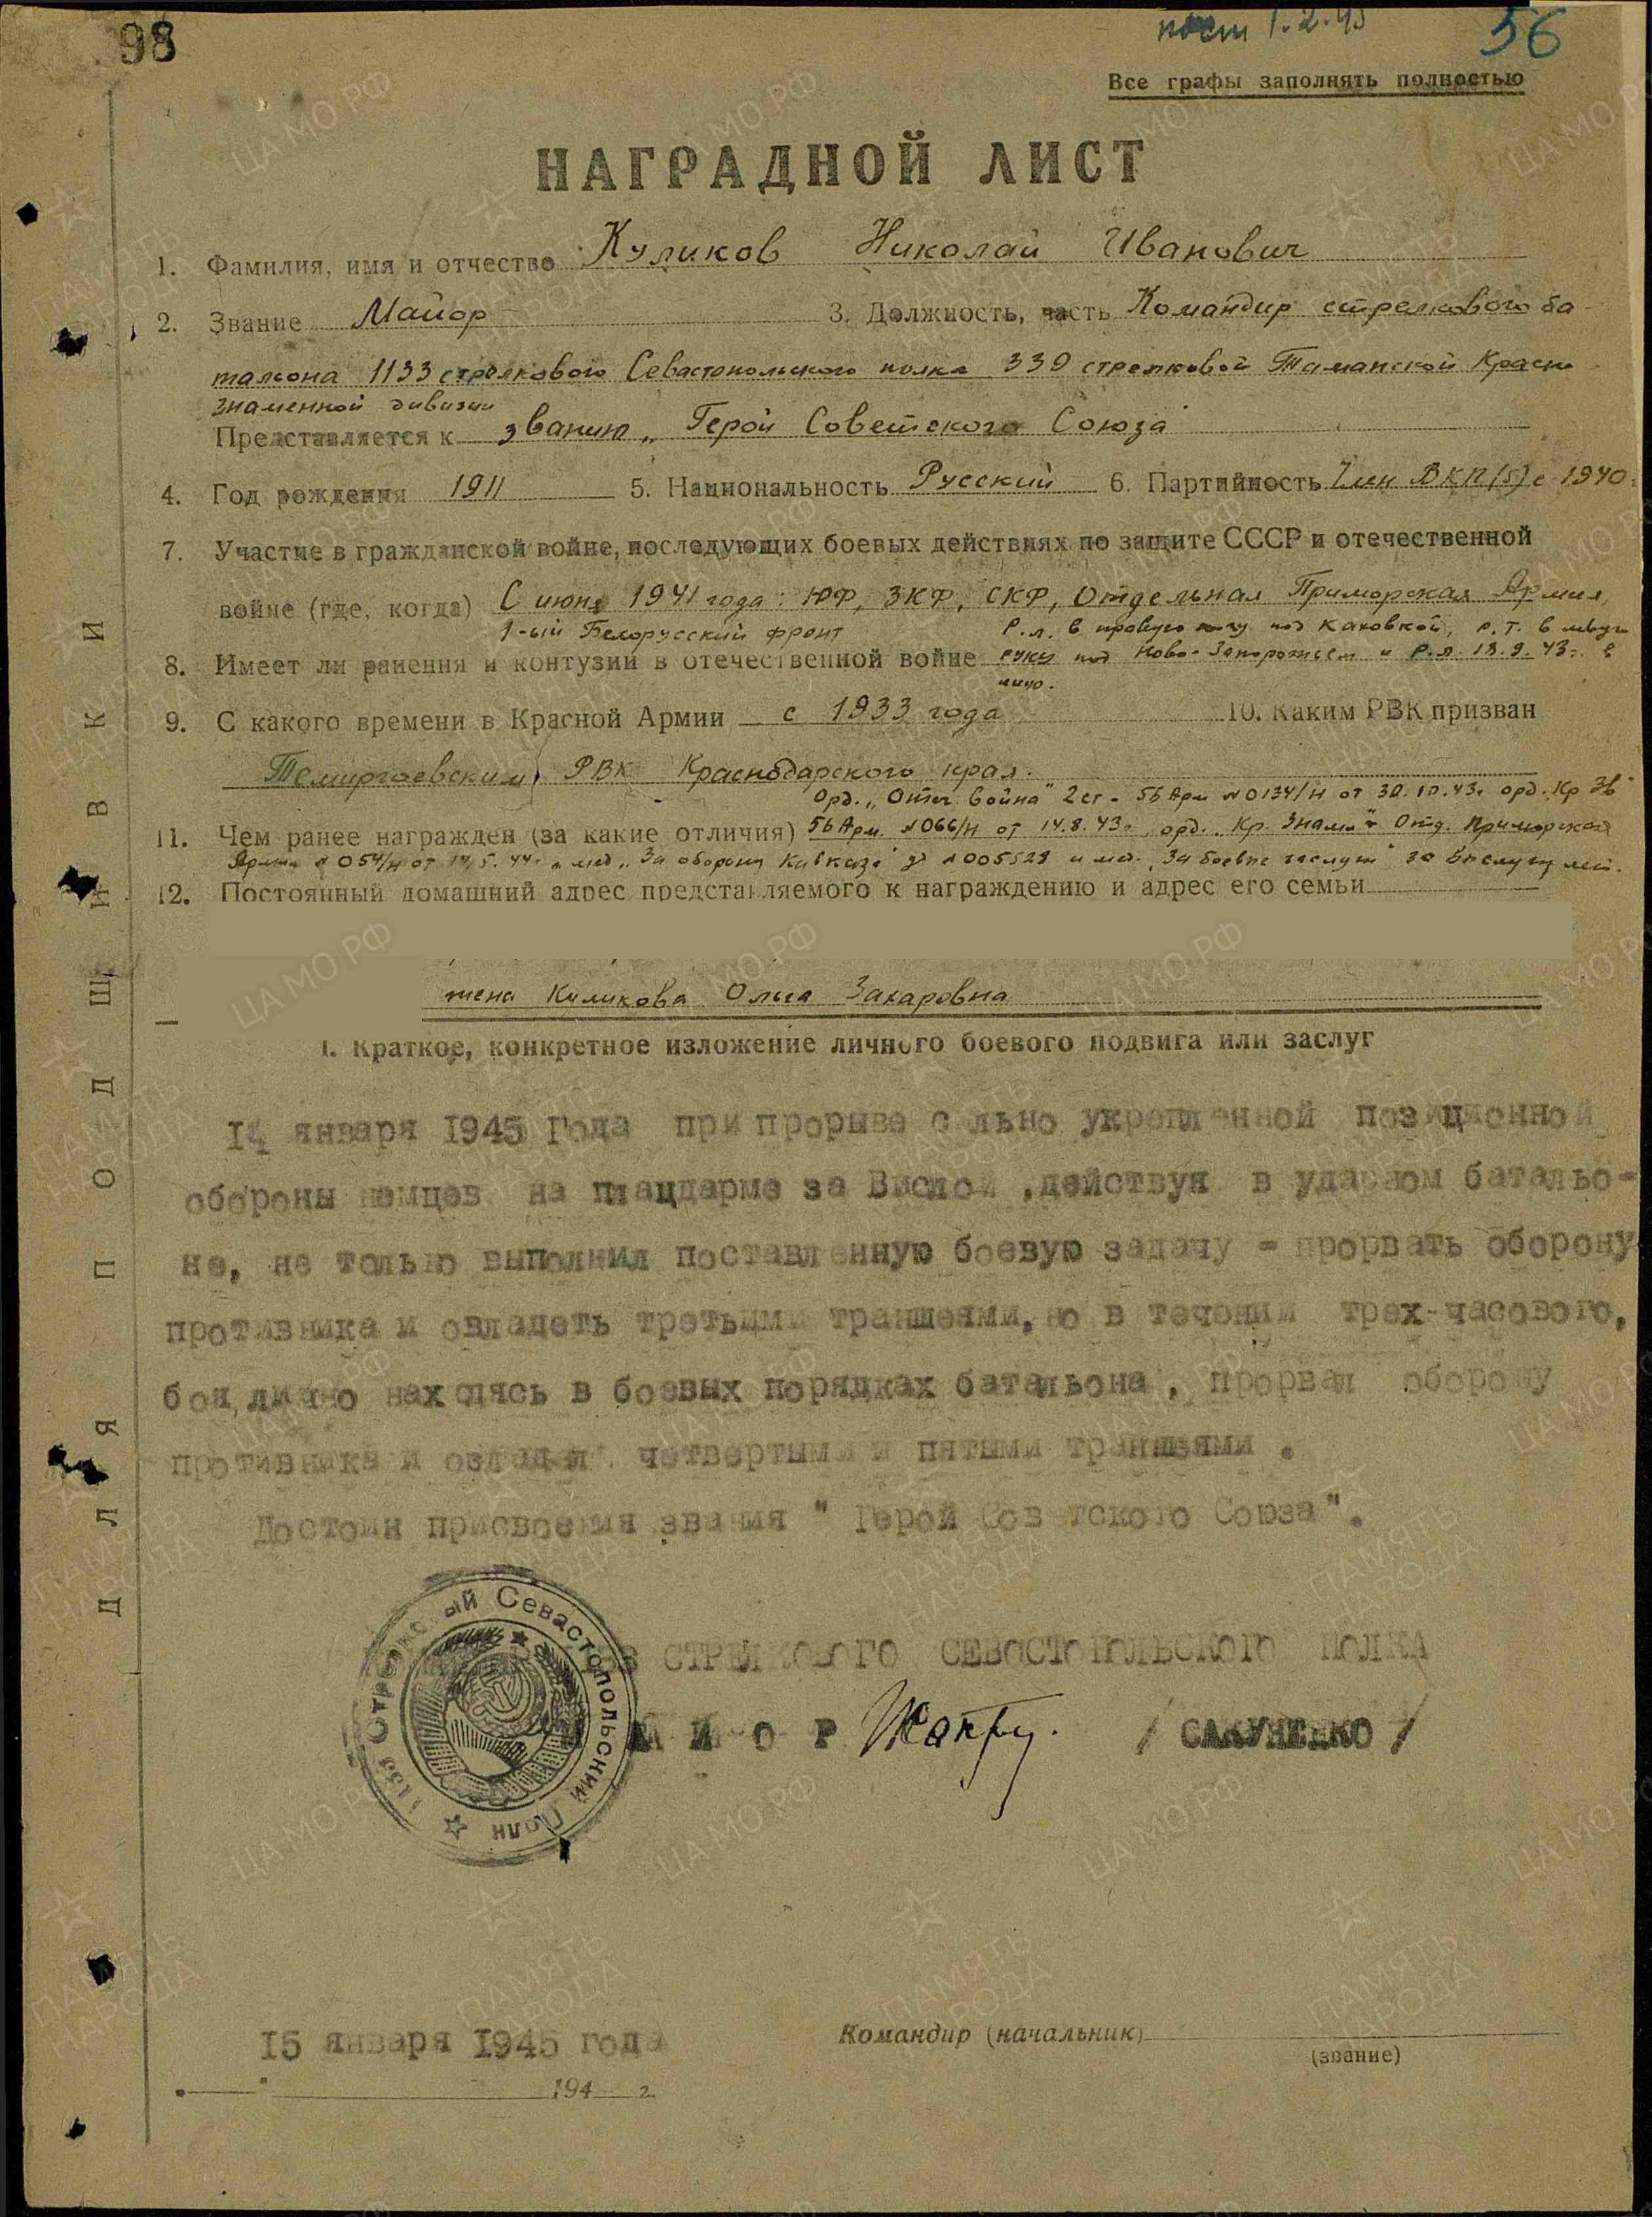 98
1.2.45
56
Все графы заполнять полностью
НАГРАДНОЙ ЛИСТ
1. Фамилия, имя и отчество Куликов Николай Иванович
2. Звание Майор 3. Должность, часть Командир стрелкового ба-
тальона 1133 стрелкового Севастопольского полка 339 стрелковой Таманской Красно
знаменной дивизии
Представляется к званию „Герой Советского Союза"
4. Год рождения 1911 5. Национальность Русский 6. Партийность Член ВКП(б) с 1940г
7. Участие в гражданской войне, последующих боевых действиях по защите СССР и отечественной
войне (где, когда) С июня 1941 года: ЮФ, ЗКФ, СКФ, Отдельная Приморская Армия,
1-ый Белорусский фронт
Р.л. в правую ногу под Каховкой, р.т. в левую
8. Имеет ли ранения и контузии в отечественной войне руку под Ново-Запорожьем и Р.л. 18.9.43г. в
лицо.
9. С какого времени в Красной Армии с 1933 года 10. Каким РВК призван
Темиргоевским РВК Краснодарского края.
Орд. „Отеч. война" 2 ст - 56 Арм №0134/н от 30.10.43г орд. „Кр Зв"
11. Чем ранее награжден (за какие отличия) 56 Арм. №066/н от 14.8.43г, орд. „Кр. Знамя" Отд. Приморской
Армии №054/н от 14.5.44г и мед „За оборону Кавказа" уд №005528 и мед. „За боевые заслуги" за выслугу лет.
12. Постоянный домашний адрес представляемого к награждению и адрес его семьи
жена Куликова Ольга Захаровна
I. Краткое, конкретное изложение личного боевого подвига или заслуг
14 января 1945 Года при прорыве сильно укрепленной позиционной
обороны немцев на плацдарме за Вислой ,действуя в ударном батальо-
не, не только выполнил поставленную боевую задачу - прорвать оборону
противника и овладеть третьими траншеями, но в течении трех-часового,
боя,лично находясь в боевых порядках батальона , прорвал оборону
противника и овладел четвертыми и пятыми траншеями .
Достоин присвоения звания " Герой Советского Союза".
1133 Стрелковый Севастопольский Полк
СТРЕЛКОВОГО СЕВОСТОПОЛЬСКОГО ПОЛКА
М А И О Р / САКУНЕНКО /
15 января 1945 года
Командир (начальник)
(звание)
" " 194 г.
ДЛЯ ПОДШИВКИ
ЦА МО.РФ
ПАМЯТЬ НАРОДА